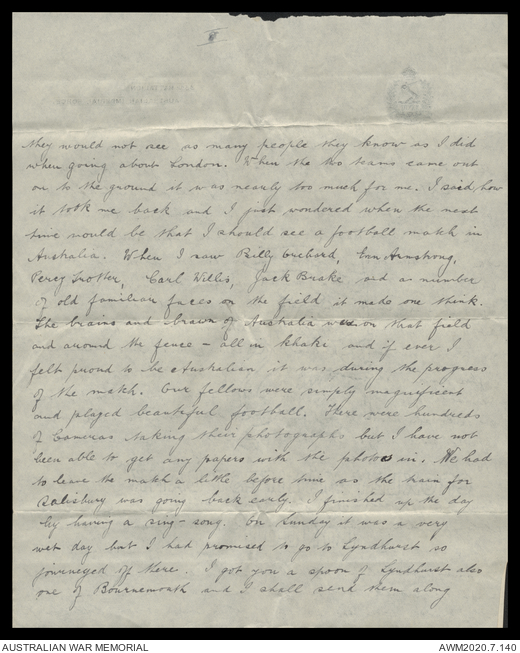 they would not see so many people they know as I did
when going about London. When the two teams came out
on to the ground it was nearly too much for me. I said, how
it took me back and I just wondered when the next
time would be that I should see a football match in
Australia. When I saw Billy Orchard, Armstrong,
Percy Trotter, Carl Willis, Jack Brake and a number
of old familiar faces on the field it made one think.
The brains and brawn of Australia was on that field
and around the fence - all in khaki and if ever I
felt proud to be Australian it was during the progress
of the match. Our fellows were simply magnificent
and played beautiful football. There were hundreds
of Cameras taking their photographs but I have not
been able to get any papers with the photos in. We had
to leave the match a little before time as the train for
Salisbury was going back early. I finished up the day
by having a sing-song. On Sunday it was a very
wet day but I had promised to go to Lyndhurst so
journeyed off there. I got you a spoon of Lyndhurst also
one of Bournemouth and I shall send them along
AUSTRALIAN WAR MEMORIAL
AWM2020.7.140